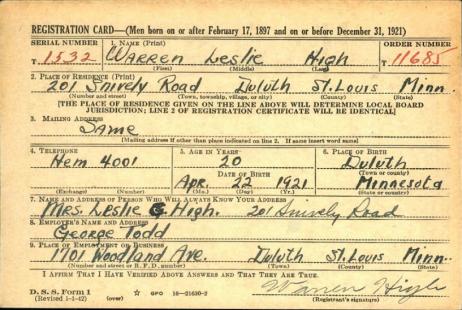 REGISTRATION CARD—(Men born on or after February 17, 1897 and on or before December 31, 1921)
SERIAL NUMBER 1. NAME (Print) ORDER NUMBER
T 1532 WARREN Leslie High T 11685
(First) (Middle) (Last)
2. PLACE OF RESIDENCE (Print)
201 Snively Road Duluth St. Louis Minn.
(Number and street) (Town, township, village, or city) (County) (State)
[THE PLACE OF RESIDENCE GIVEN ON THE LINE ABOVE WILL DETERMINE LOCAL BOARD
JURISDICTION; LINE 2 OF REGISTRATION CERTIFICATE WILL BE IDENTICAL]
3. MAILING ADDRESS
Same
[Mailing address if other than place indicated on line 2. If same insert word same]
4. TELEPHONE 5. AGE IN YEARS 6. PLACE OF BIRTH
Hem 4001 20 Duluth
DATE OF BIRTH (Town or county)
Apr. 22 1921 Minnesota
(Exchange) (Number) (Mo.) (Day) (Yr.) (State or country)
7. NAME AND ADDRESS OF PERSON WHO WILL ALWAYS KNOW YOUR ADDRESS
Mrs. Leslie G High. 201 Snively Road
8. EMPLOYER'S NAME AND ADDRESS
George Todd
9. PLACE OF EMPLOYMENT OR BUSINESS
1701 Woodland Ave. Duluth St. Louis Minn.
(Number and street or R. F. D. number) (Town) (County) (State)
I AFFIRM THAT I HAVE VERIFIED ABOVE ANSWERS AND THAT THEY ARE TRUE.
D. S. S. Form 1
(Revised 1-1-42) (over) ☆ GPO 16—21630-2 Warren High
(Registrant's signature)